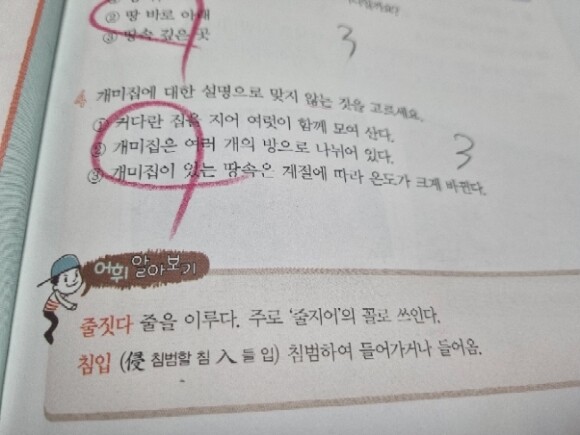 ② 땅 바로 아래
③ 땅속 깊은 곳
3
4 개미집에 대한 설명으로 맞지 않는 것을 고르세요.
① 커다란 집을 지어 여럿이 함께 모여 산다.
② 개미집은 여러 개의 방으로 나뉘어 있다.
③ 개미집이 있는 땅속은 계절에 따라 온도가 크게 바뀐다.
3
어휘 알아보기
줄짓다 줄을 이루다. 주로 '줄지어'의 꼴로 쓰인다.
침입 (侵 침범할 침 入 들 입) 침범하여 들어가거나 들어옴.